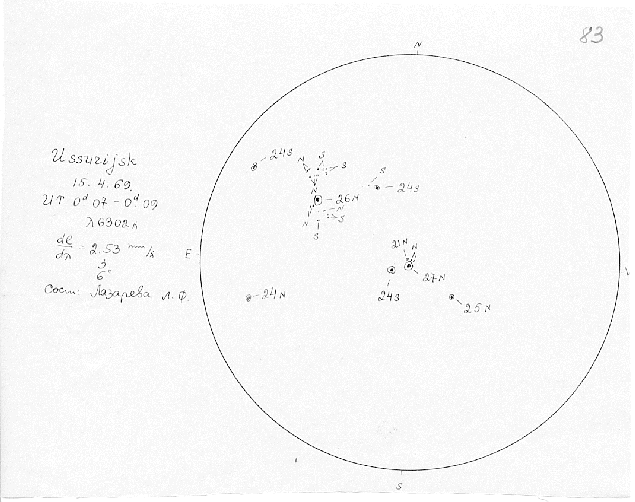 83
N
Ussurijsk
15. 4. 69.
UT 0ᵈ 07 - 0ᵈ 09
λ 6302 Å
dl/dλ = 2.53 mm/Å
3
6"
Сост. Лазарева Л. Ф.
E
S
24S
N
S
S
N
26N
N
S
N
S
S
24S
21N
N
27N
24S
25N
24N